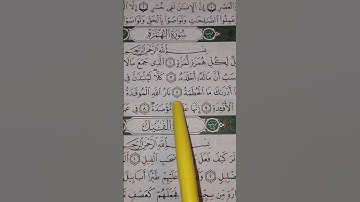 الْعَصْرِ ۝١ إِنَّ الْإِنسَٰنَ لَفِي خُسْرٍ ۝٢ إِلَّا
عَمِلُوا الصَّٰلِحَٰتِ وَتَوَاصَوْا بِالْحَقِّ وَتَوَاصَوْا
سُورَةُ الْهُمَزَةِ
بِسْمِ اللَّهِ الرَّحْمَٰنِ الرَّحِيمِ
لِّكُلِّ هُمَزَةٍ لُّمَزَةٍ ۝١ الَّذِي جَمَعَ مَالًا
سَبُ أَنَّ مَالَهُ أَخْلَدَهُ ۝٣ كَلَّا لَيُنبَذَنَّ فِي
أَدْرَىٰكَ مَا الْحُطَمَةُ ۝٥ نَارُ اللَّهِ الْمُوقَدَةُ
الْأَفْـِٔدَةِ ۝٧ إِنَّهَا مُّؤْصَدَةٌ ۝٨ فِي
الْفِيلِ
بِسْمِ اللَّهِ الرَّحْمَٰنِ الرَّحِيمِ
تَرَ كَيْفَ فَعَلَ صْحَٰبِ الْفِيلِ ۝١
عَلَيْهِمْ طَيْرًا أَبَابِيلَ
ارَةٍ مِّن فَجَعَلَهُمْ كَعَصْفٍ